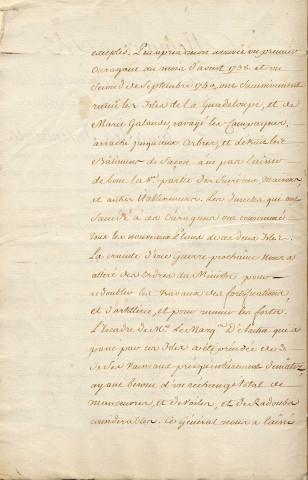 exceptés. Peu après mon arrivée un premier
Ouragan au mois d'aoust 1738 et un
Second de Septembre 1740, ont Successivement
ruiné les Isles de la Guadeloupe, et de
Marie Galande, ravagé les Campagnes,
arraché jusqu'aux Arbres, et détruit les
Bâtimens de façon a ne pas laisser
de bout la partie des Sucreries Maisons
et autres Etablissemens. Les Insectes qui ont
Succédé à ces Ouragans ont consumé
tous les nouveaux Plants de ces deux Isles:
La crainte d'une Guerre prochaine Nous a
attiré des Ordres du Ministre pour
redoubler les travaux des fortifications
et d'artillerie, et pour munir les forts.
L'Escadre de M. Le Marq. D'Antin qui a
passé par ces Isles a été précédée de 3
de Ses Vaisseaux presqu'entierement
ayant besoin d'un rechange total de
manoeuvres, et de Voiles, et de Radoubs
considerables. Ce Général nous a laissé